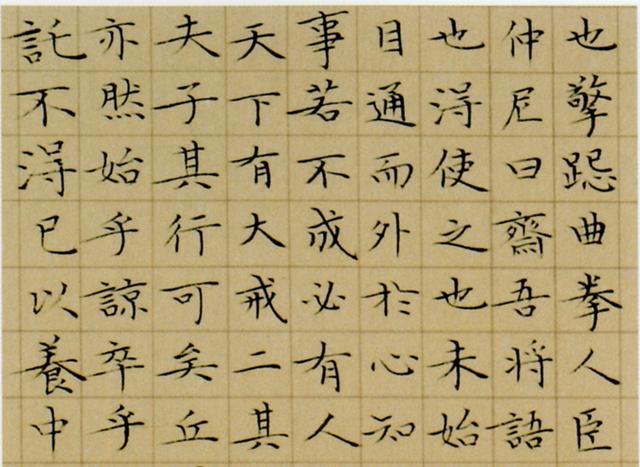 也擎跽曲拳人臣
仲尼曰齋吾将語
也得使之也未始
目通而外於心知
事若不成必有人
天下有大戒二其
夫子其行可矣丘
亦然始乎諒卒乎
託不得已以養中